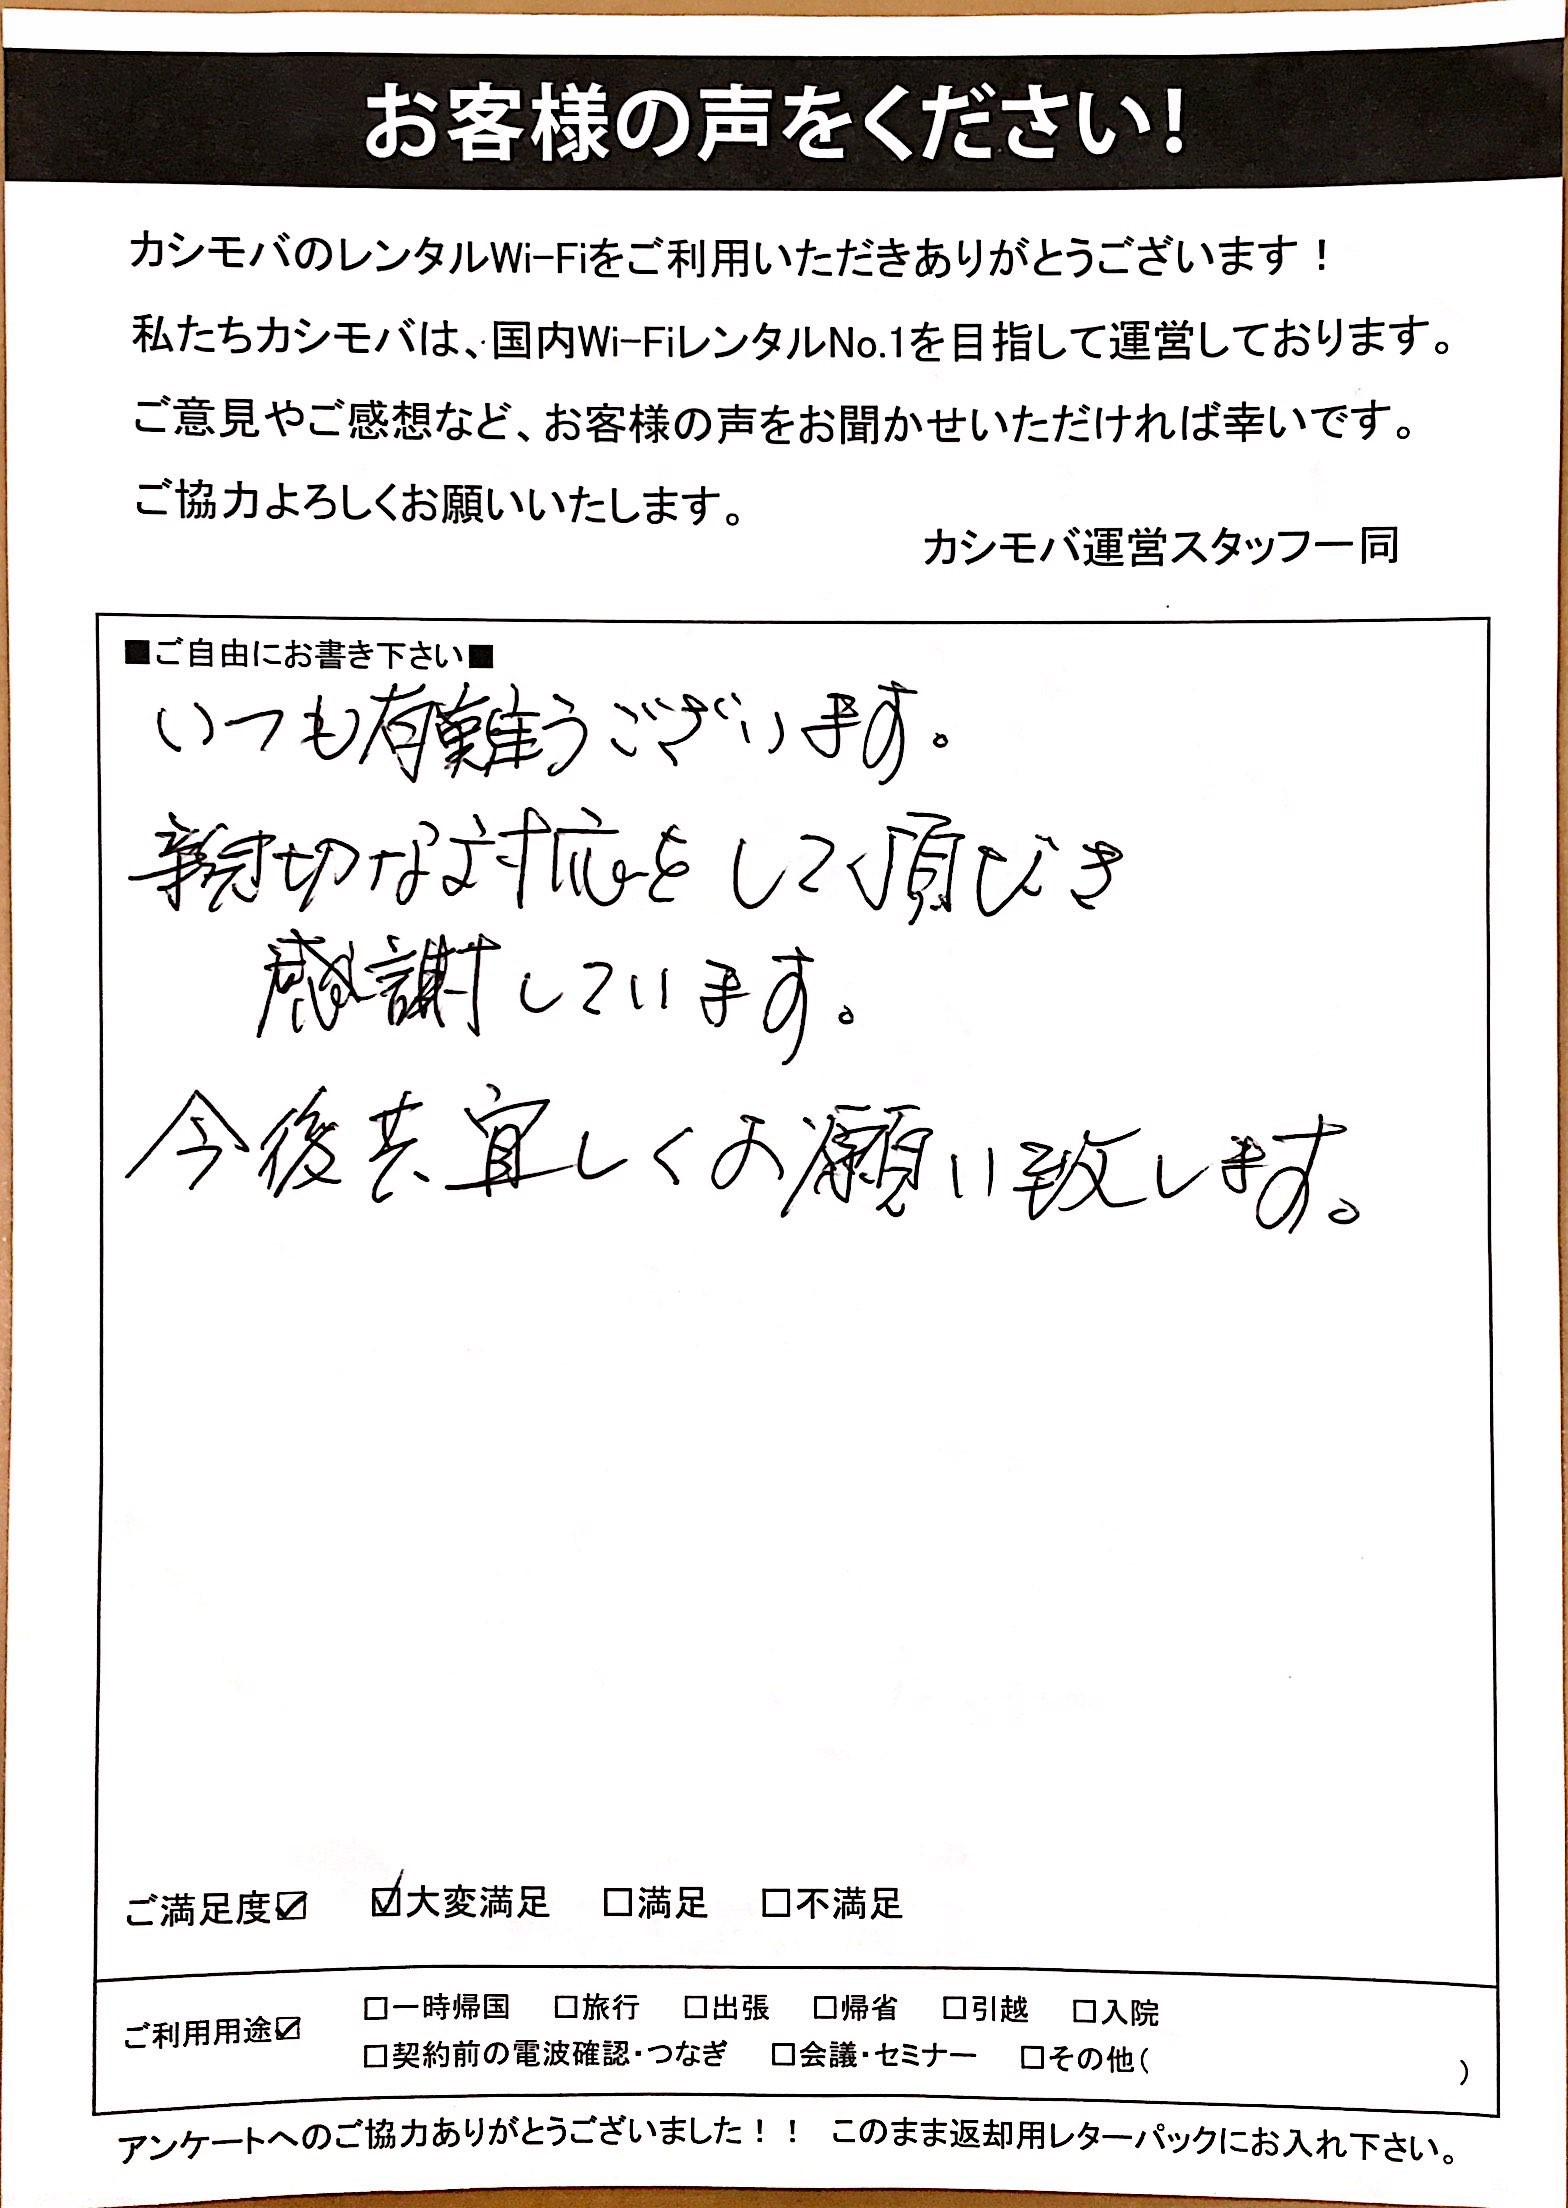 お客様の声をください!
カシモバのレンタルWi-Fiをご利用いただきありがとうございます!
私たちカシモバは、国内Wi-FiレンタルNo.1を目指して運営しております。
ご意見やご感想など、お客様の声をお聞かせいただければ幸いです。
ご協力よろしくお願いいたします。
カシモバ運営スタッフ一同
■ご自由にお書き下さい■
いつも有難うございます。
親切な対応をして頂だき
感謝しています。
今後共宜しくお願い致します。
ご満足度☑ ☑大変満足 □満足 □不満足
ご利用用途☑ □一時帰国 □旅行 □出張 □帰省 □引越 □入院
□契約前の電波確認・つなぎ □会議・セミナー □その他( )
アンケートへのご協力ありがとうございました!! このまま返却用レターパックにお入れ下さい。